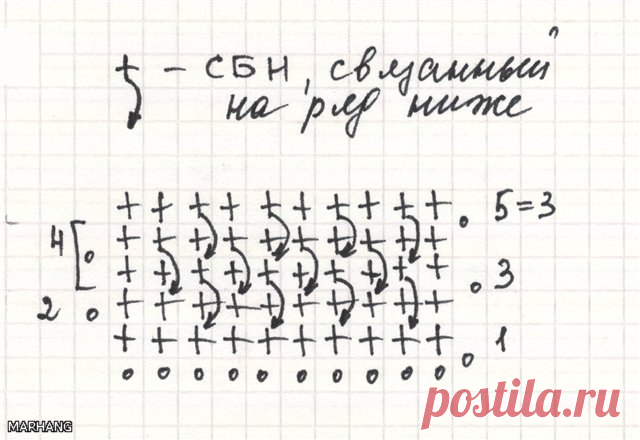 + – СБН, связанный
на ряд ниже
+ + + + + + + + + + . 5=3
4 [ + + + + + + + + + +
o + + + + + + + + + + o 3
2 o + + + + + + + + + +
+ + + + + + + + + + o 1
o o o o o o o o o o
postila.ru
MARHANG